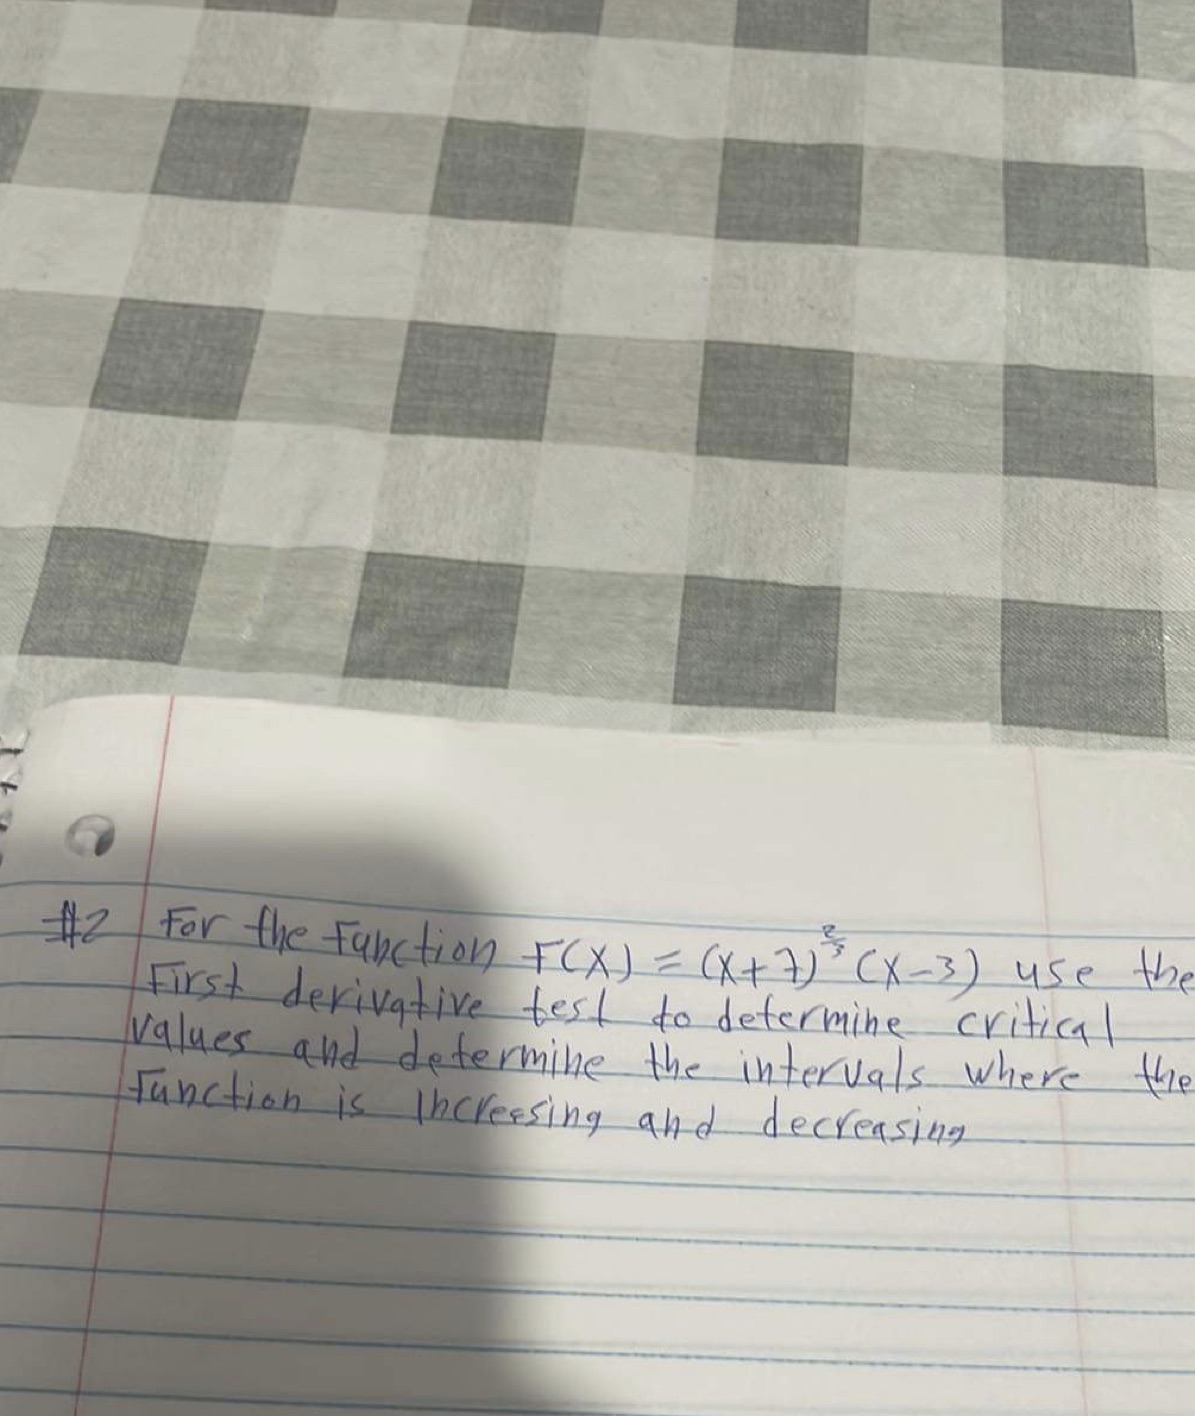 #2 For the Function F(X) = (x+7)^(2/3) (x-3) use the
First derivative test to determine critical
values and determine the intervals where the
function is increesing and decreasing